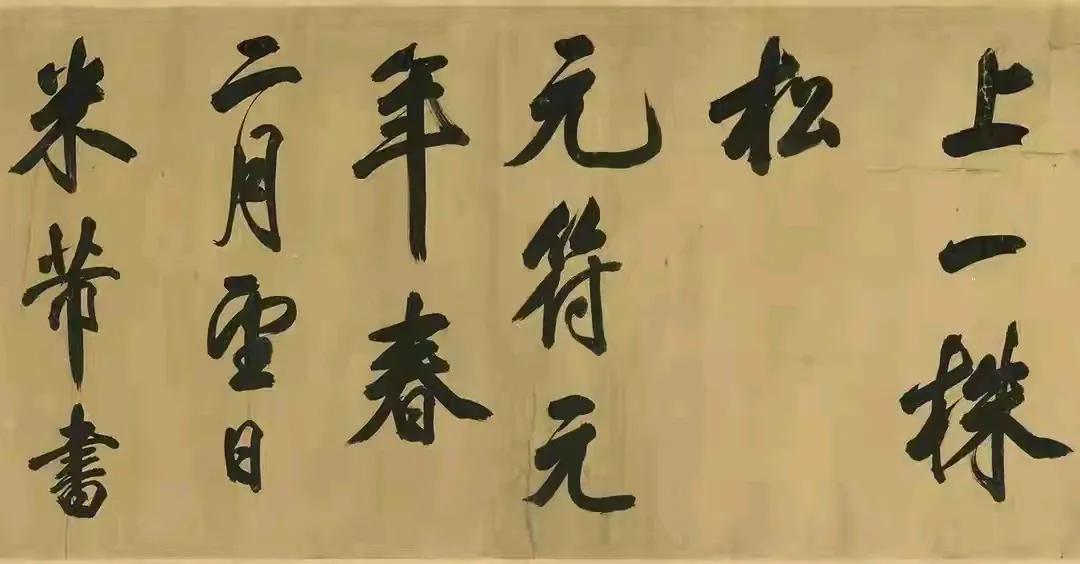 上一株
松
元符元
年春
二月望日
米芾書